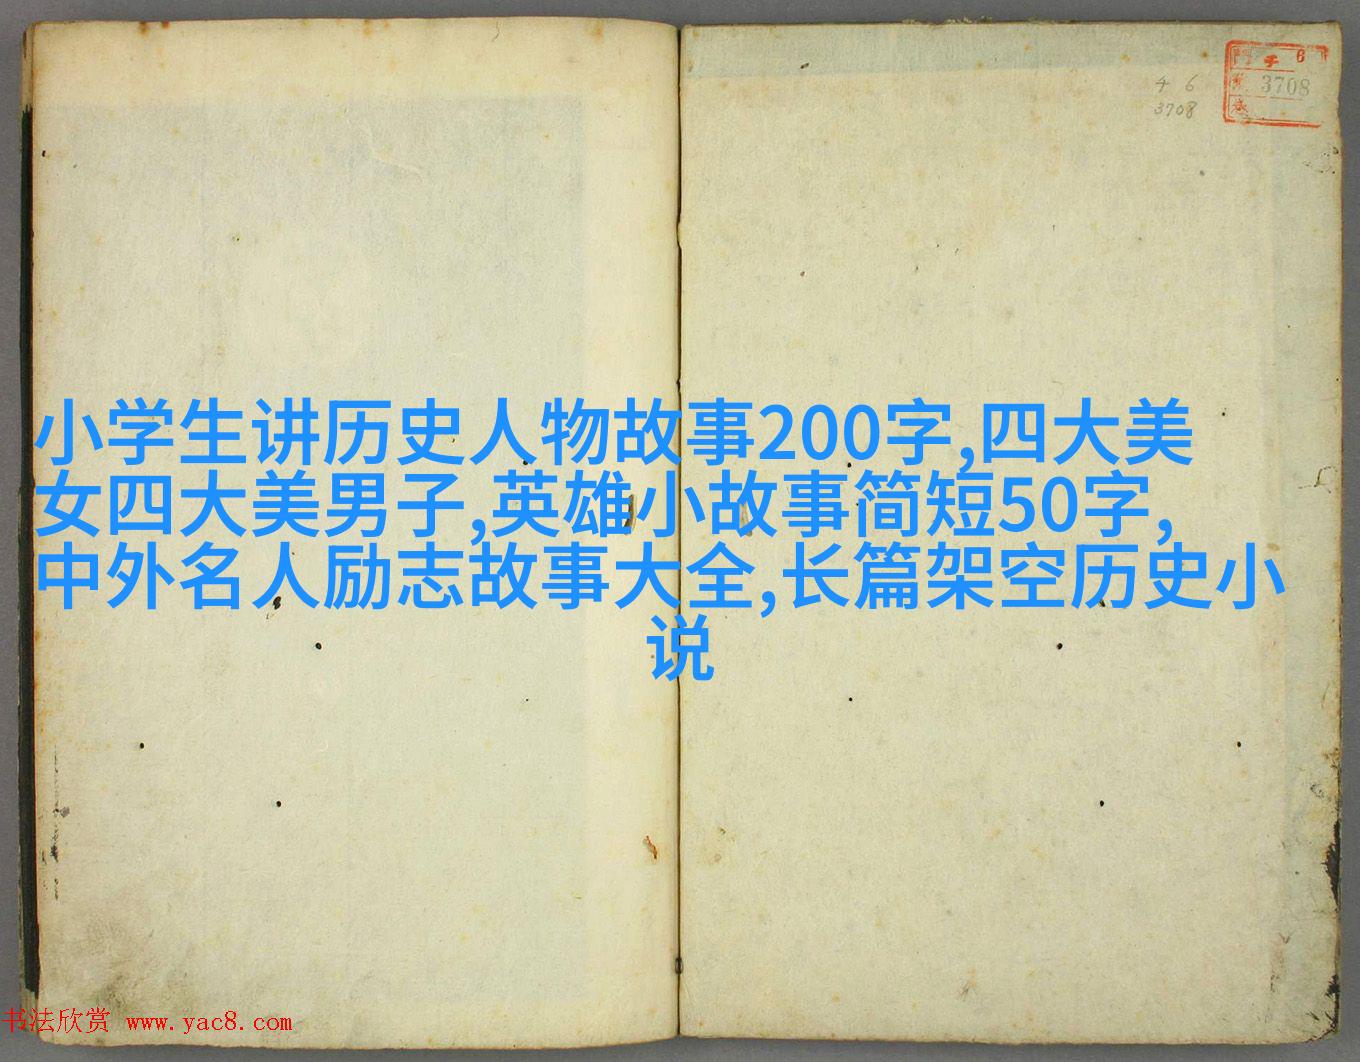 4 6
3708
6
3708
小学生讲历史人物故事200字,四大美
女四大美男子,英雄小故事简短50字,
中外名人励志故事大全,长篇架空历史小
说
书法欣赏 www.yac8.com